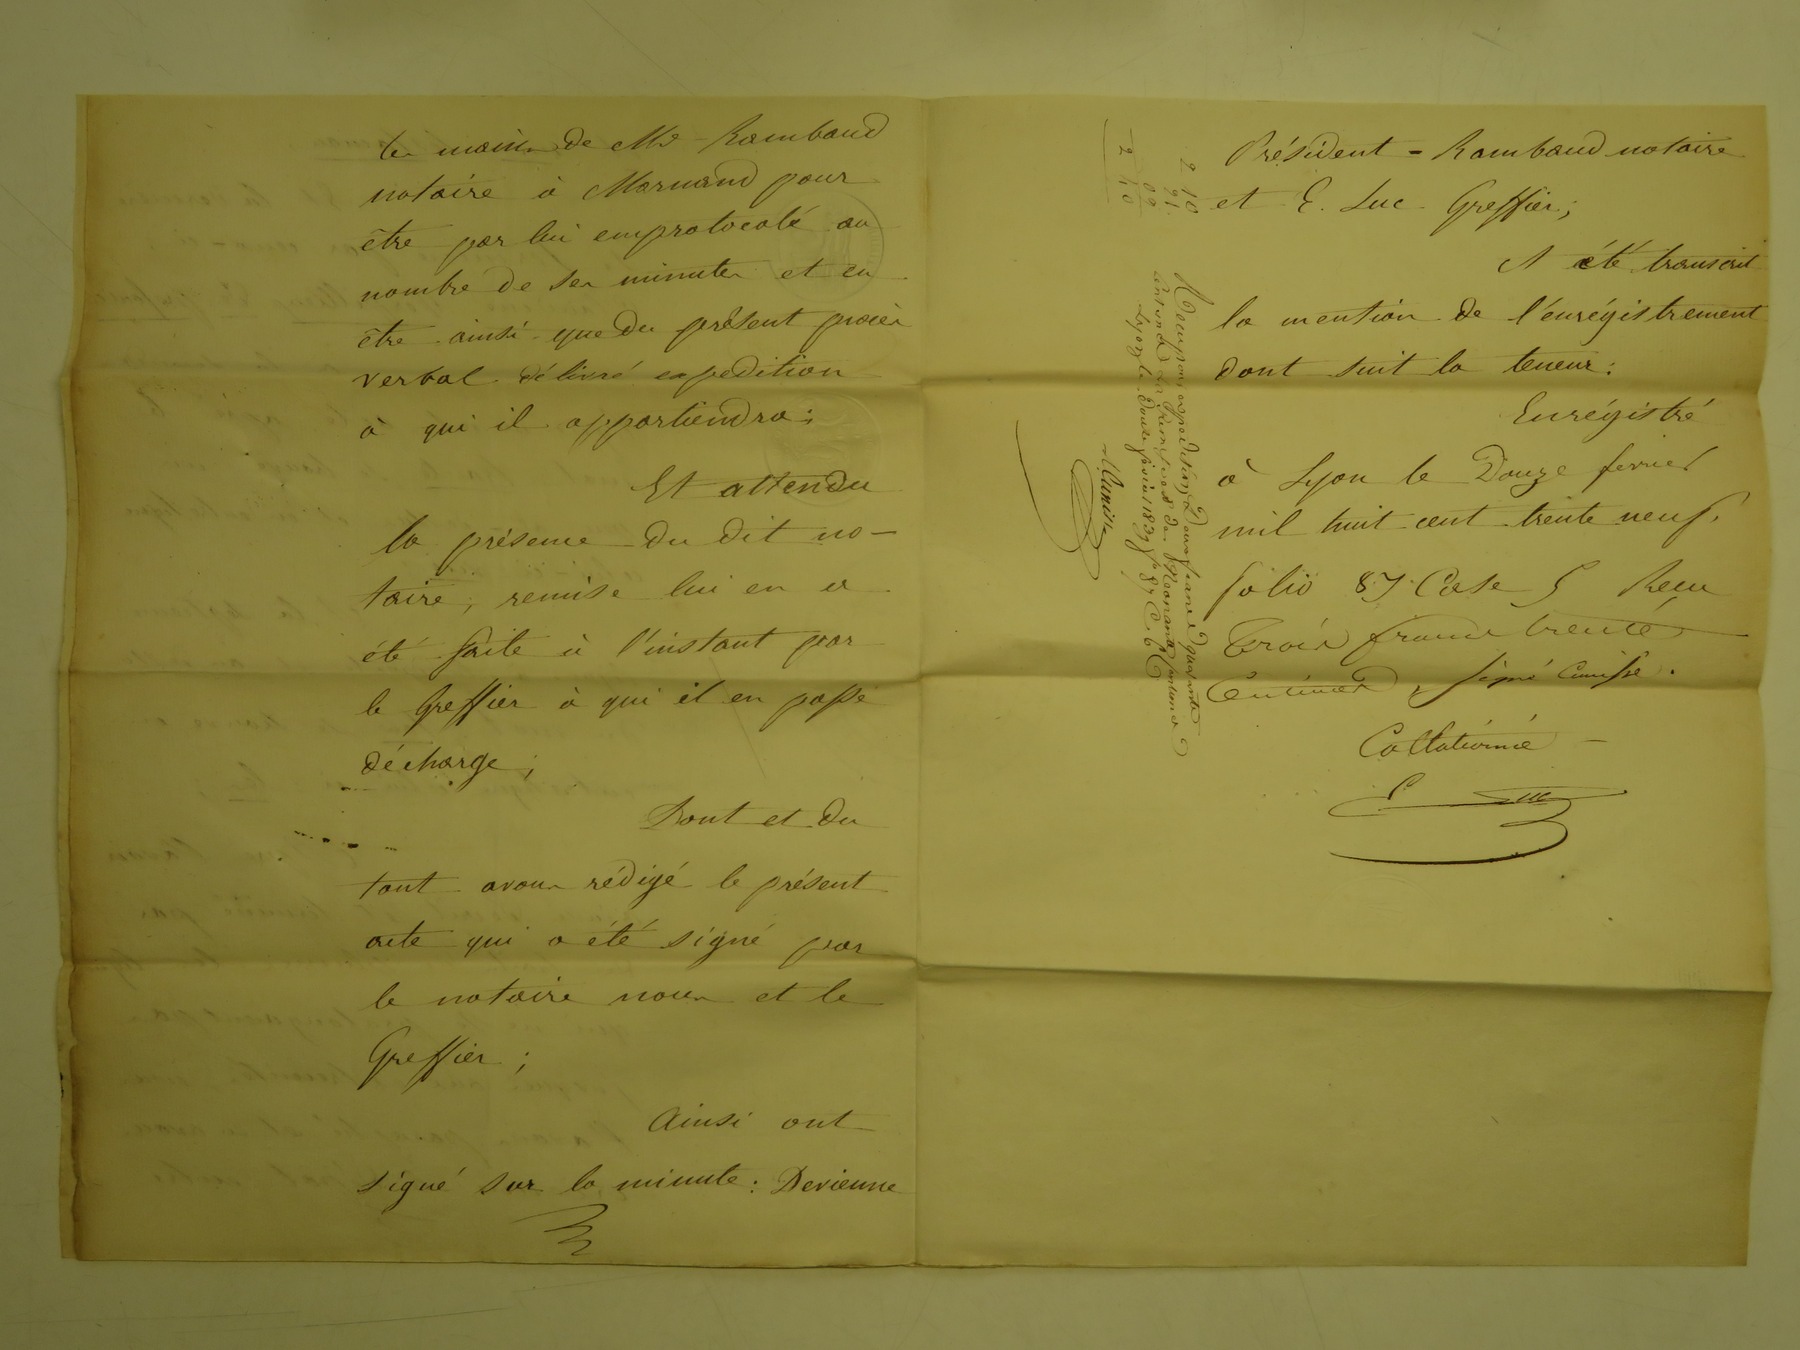 les mains de Me Rambaud
notaire à Mornand pour
être par lui emprotocolé au
nombre de ses minutes et en
être ainsi que du présent procès
verbal délivré expedition
à qui il appartiendra;
Et attendu
la présence du dit no-
taire, remise lui en a
été faite à l'instant par
le Greffier à qui il en passe
décharge;
Dont et du
tout avons rédigé le présent
acte qui a été signé par
le notaire nous et le
Greffier;
Ainsi ont
signé sur la minute: Devienne
Président - Rambaud notaire
et E. Luc Greffier;
A été transcrit
la mention de l'enrégistrement
dont suit la teneur:
Enrégistré
à Lyon le Douze fevrier
mil huit cent trente neuf.
folio 87 Case 5 Reçu
Trois francs trente
Centimes, signé
Collationné
E Luc
2 10
2 10
expédition Deux francs quarante
Lyon le Douze février 1839 fo 87 C. 6